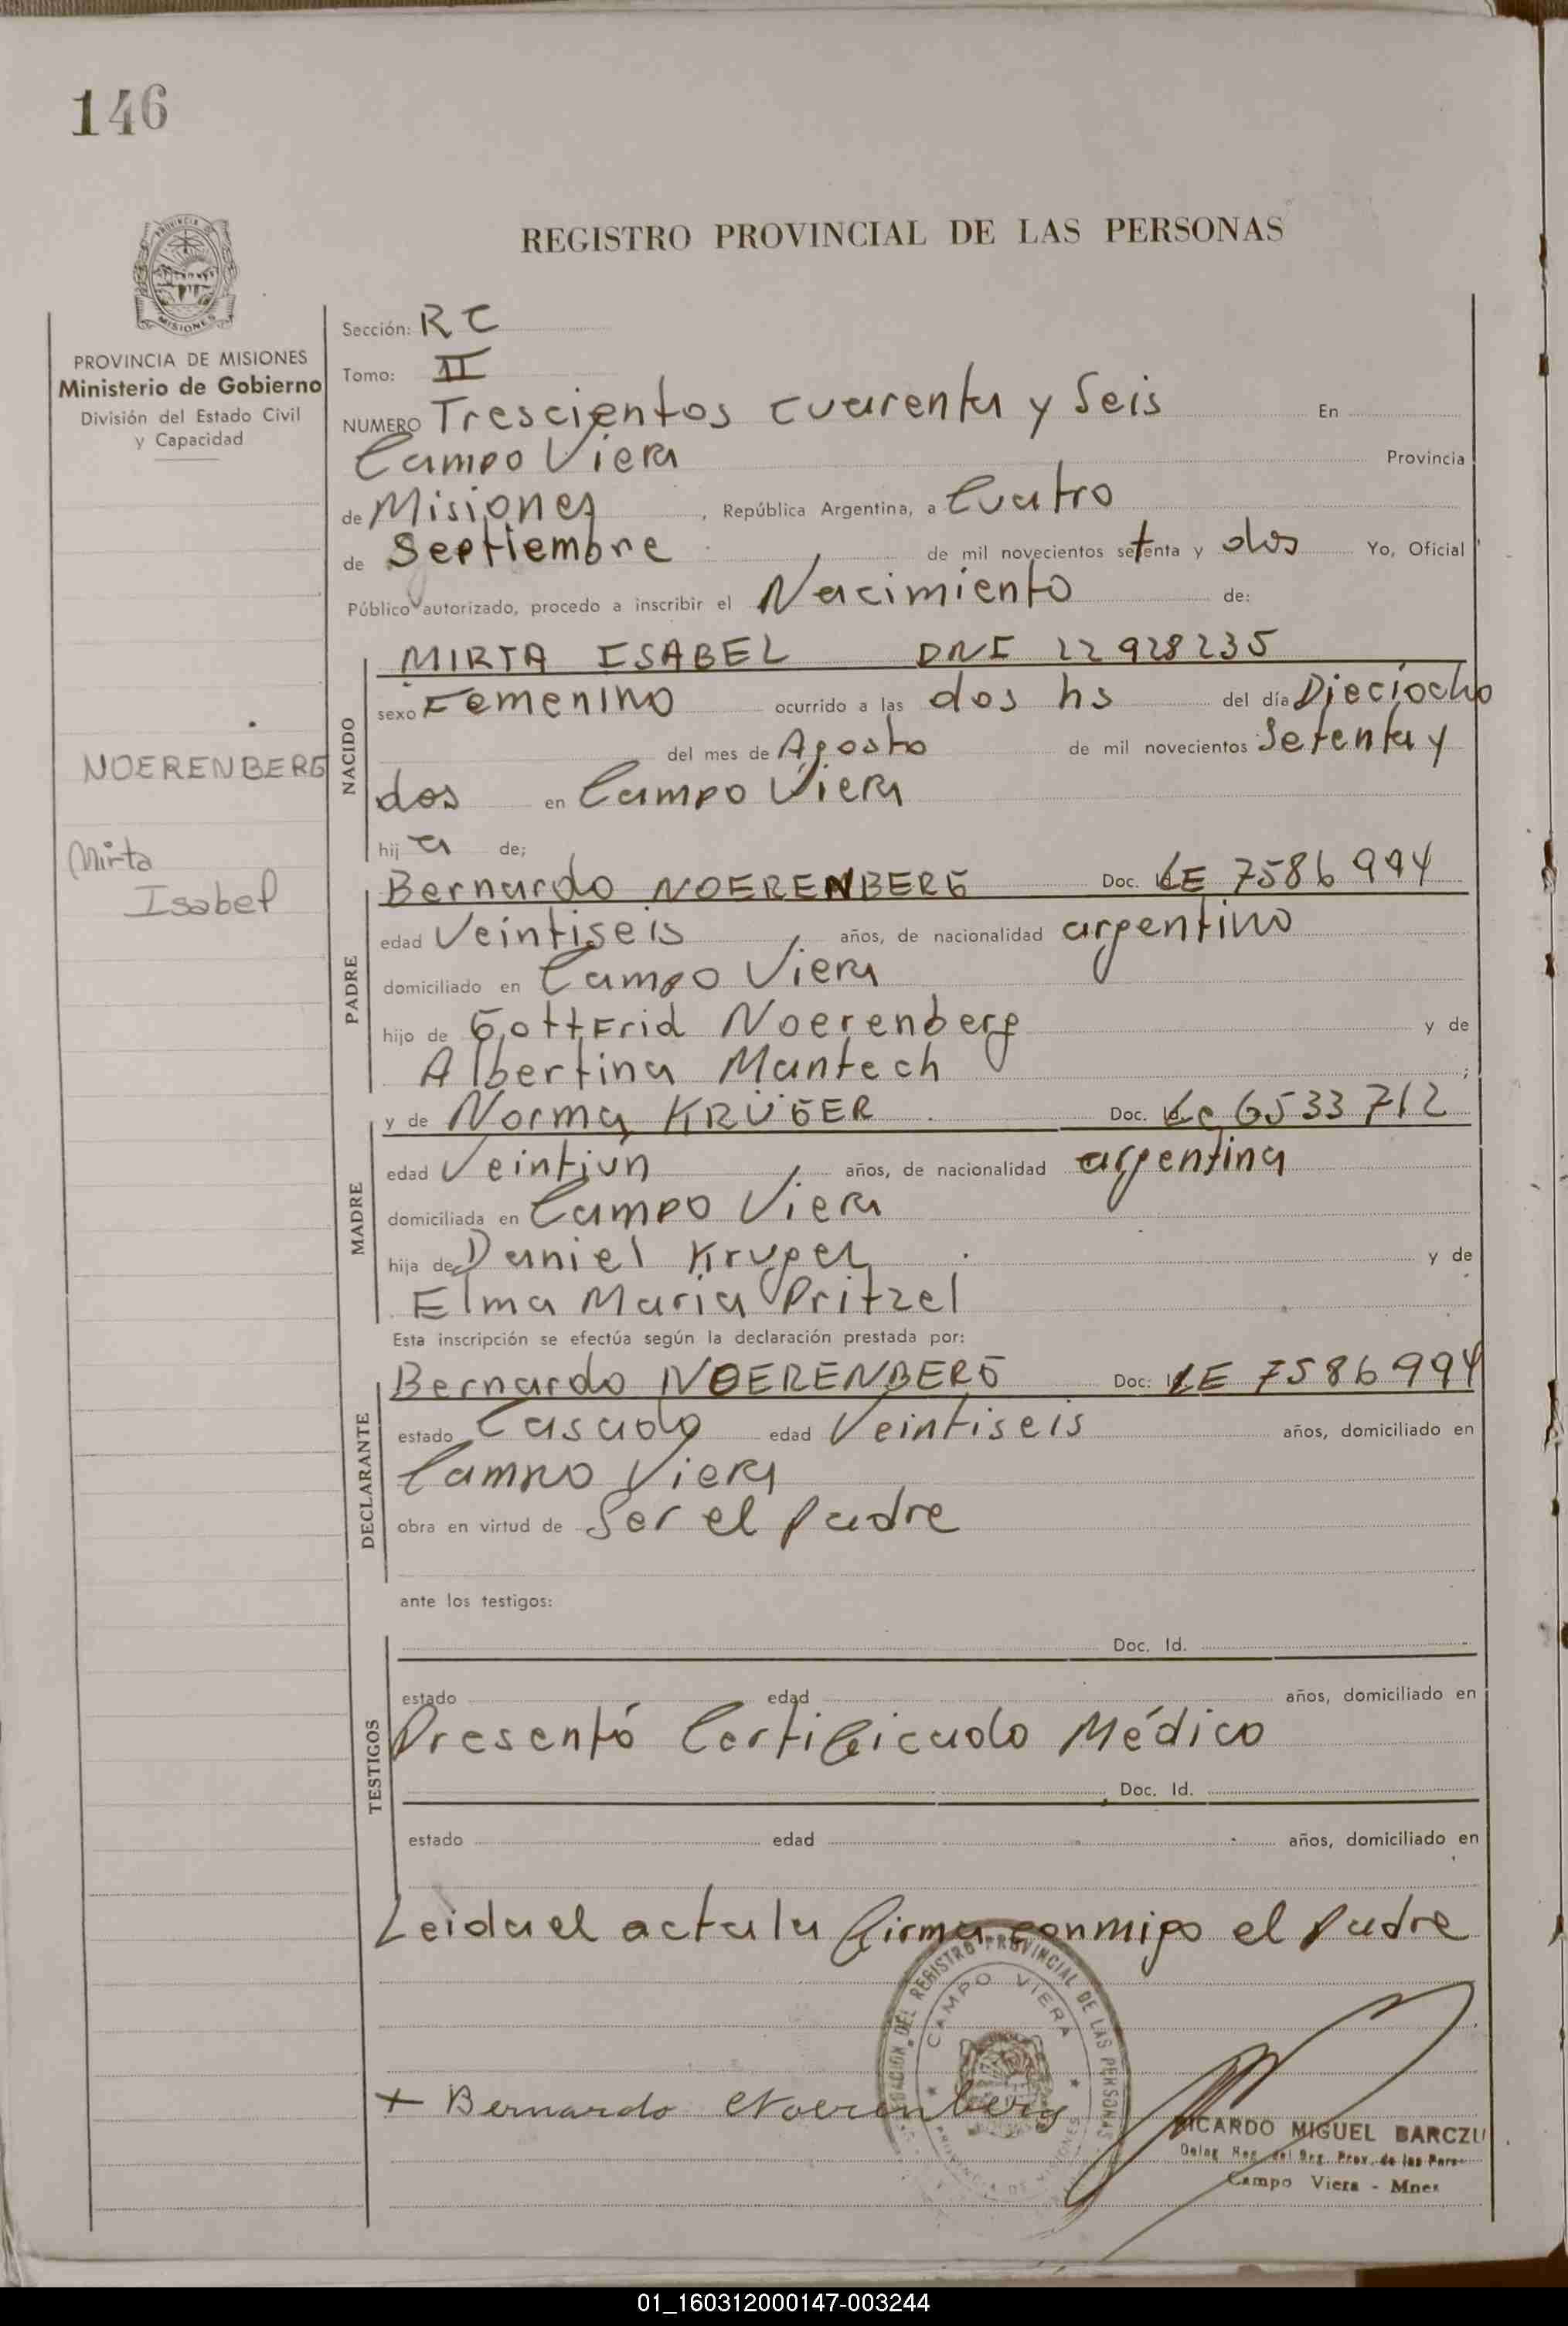 146
REGISTRO PROVINCIAL DE LAS PERSONAS
PROVINCIA DE
MISIONES
PROVINCIA DE MISIONES
Ministerio de Gobierno
División del Estado Civil
y Capacidad
NOERENBERG
Mirta
Isabel
Sección: RC
Tomo: II
NUMERO Trescientos cuarenta y Seis En
Campo Viera Provincia
de Misiones, República Argentina, a Cuatro
de Septiembre de mil novecientos setenta y dos Yo, Oficial
Público autorizado, procedo a inscribir el Nacimiento de:
NACIDO
MIRTA ISABEL DNI 22 928 235
sexo Femenino ocurrido a las dos hs del día Dieciocho
del mes de Agosto de mil novecientos Setenta y
dos en Campo Viera
hija de;
PADRE
Bernardo NOERENBERG Doc. LE 7586 994
edad Veintiseis, años, de nacionalidad argentino
domiciliado en Campo Viera
hijo de Gottfrid Noerenberg y de
Albertina Mantech;
MADRE
y de Norma KRÜGER Doc. Lc 6533 712
edad Veintiún, años, de nacionalidad argentina
domiciliada en Campo Viera
hija de Daniel Kruger y de
Elma Maria Pritzel
Esta inscripción se efectúa según la declaración prestada por:
DECLARANTE
Bernardo NOERENBERG Doc. LE 7586 994
estado Casado edad Veintiseis años, domiciliado en
Campo Viera
obra en virtud de Ser el padre
ante los testigos:
TESTIGOS
Doc. Id.
estado edad años, domiciliado en
Presentó Certificado Médico
Doc. Id.
estado edad años, domiciliado en
Leida el acta la firma conmigo el padre
DEL REGISTRO PROVINCIAL DE LAS PERSONAS
CAMPO VIERA
PROVINCIA DE MISIONES
+ Bernardo Noerenberg
RICARDO MIGUEL BARCZU
Deleg. Reg. del Reg. Prov. de las Pers
Campo Viera - Mnes
01_160312000147-003244